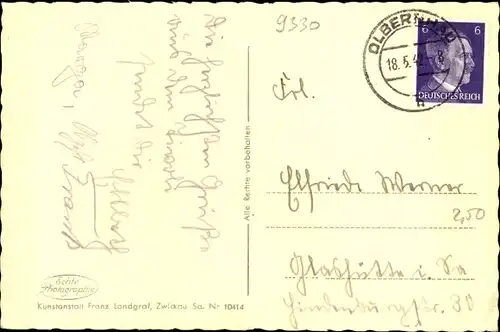 9330
OLBERNHAU
18.5.42-8
6 6
DEUTSCHES REICH
Frl.
Elfriede Werner
2,50
Glashütte i. Sa
Hindenburgstr. 30
Die herzlichsten Grüße
aus dem
sendet die
Alle Rechte vorbehalten
Echte
Photographie
Kunstanstalt Franz Landgraf, Zwickau Sa. Nr 10414